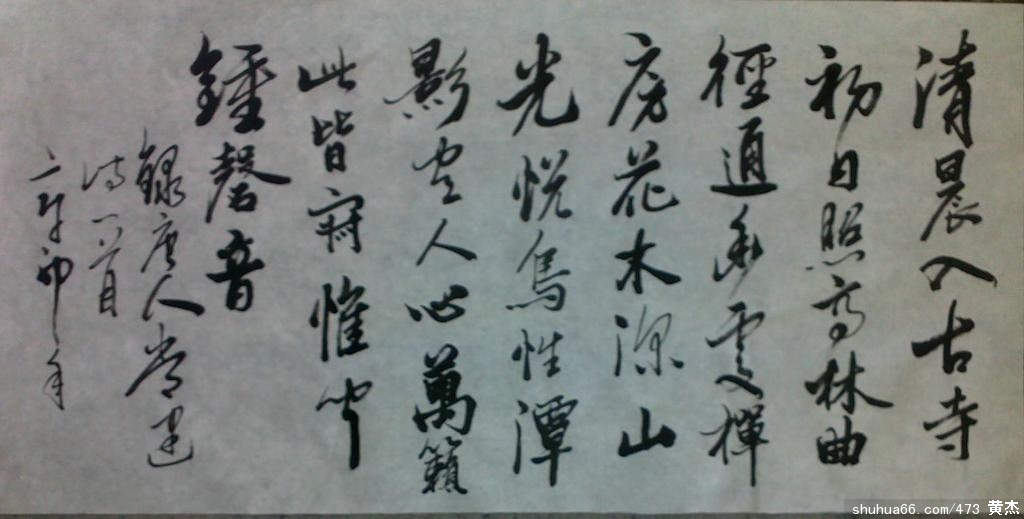 清晨入古寺
初日照高林曲
徑通幽處禪
房花木深山
光悦鳥性潭
影空人心萬籟
此皆寂惟聞
鍾磬音
錄唐人常建
诗一首
辛卯年
shuhua66.com/473 黄杰